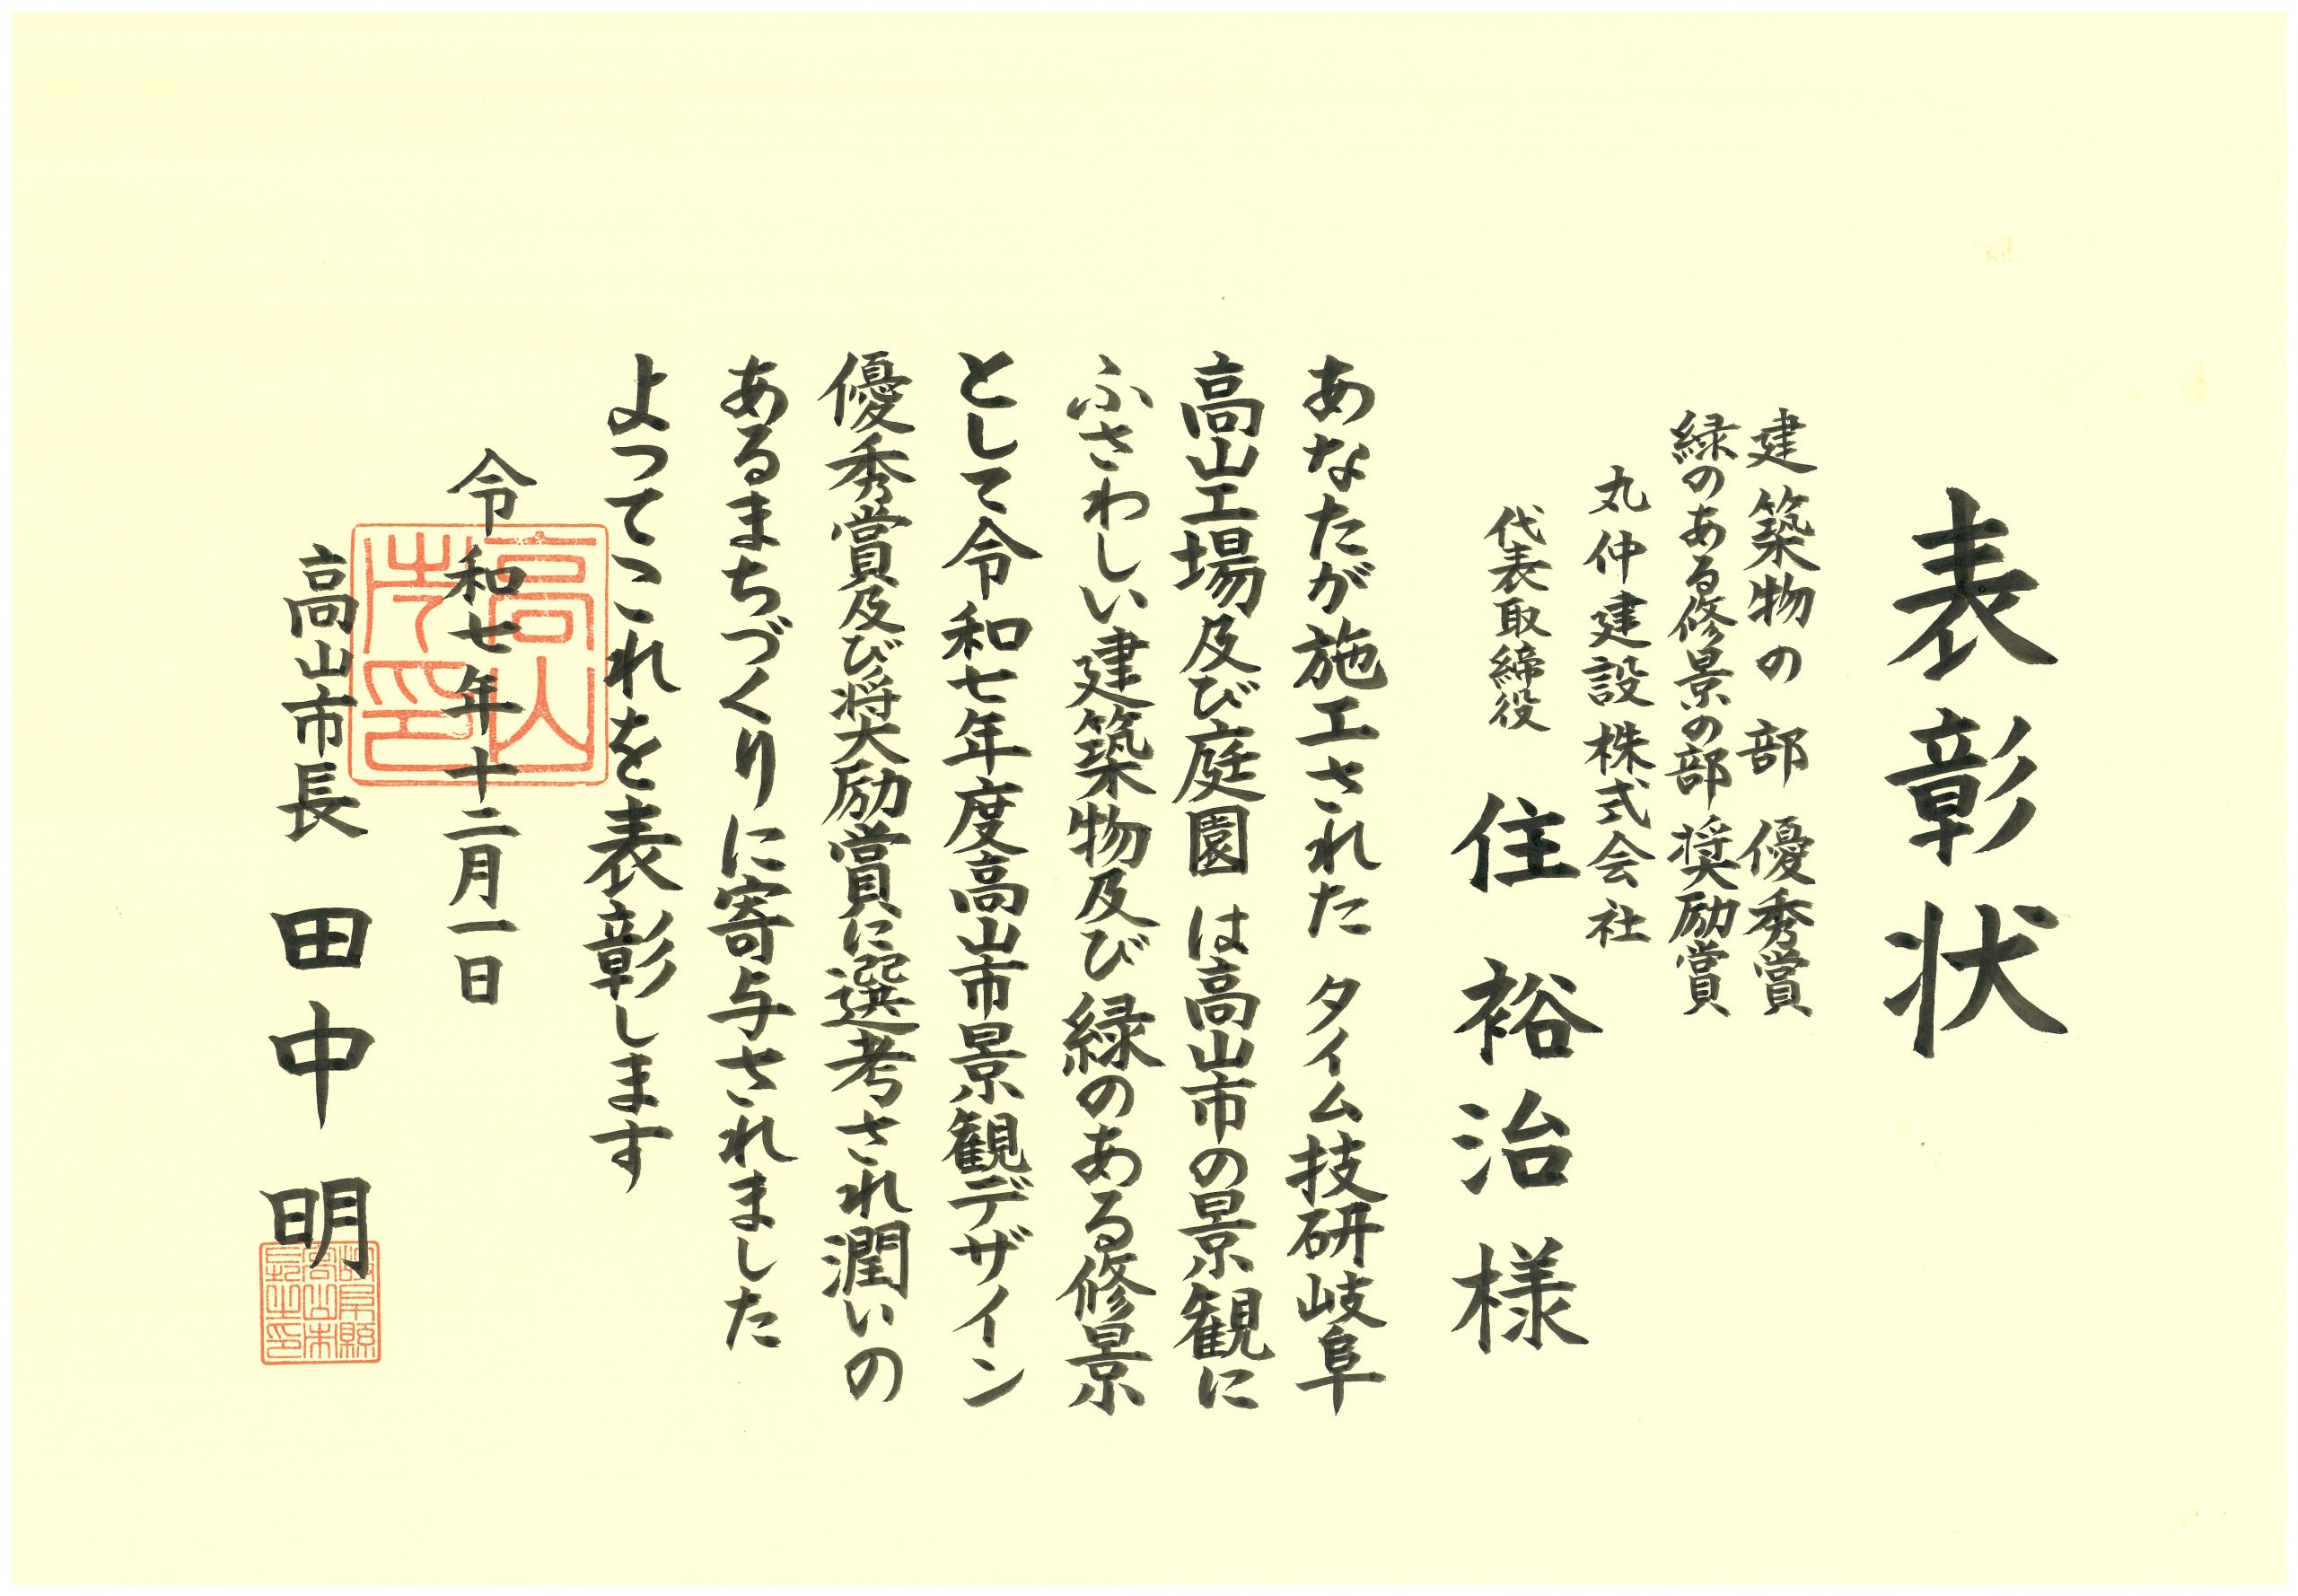 表彰状
建築物の部 優秀賞
緑のある修景の部 奨励賞
丸仲建設株式会社
代表取締役 住 裕治 様
あなたが施工された タイム技研岐阜
高山工場及び庭園 は高山市の景観に
ふさわしい建築物及び緑のある修景
として令和七年度高山市景観デザイン
優秀賞及び奨励賞に選考され潤いの
あるまちづくりに寄与されました
よってこれを表彰します
令和七年十二月一日
高山市長 田中 明
高山
市印
岐阜縣
高山市
長之印